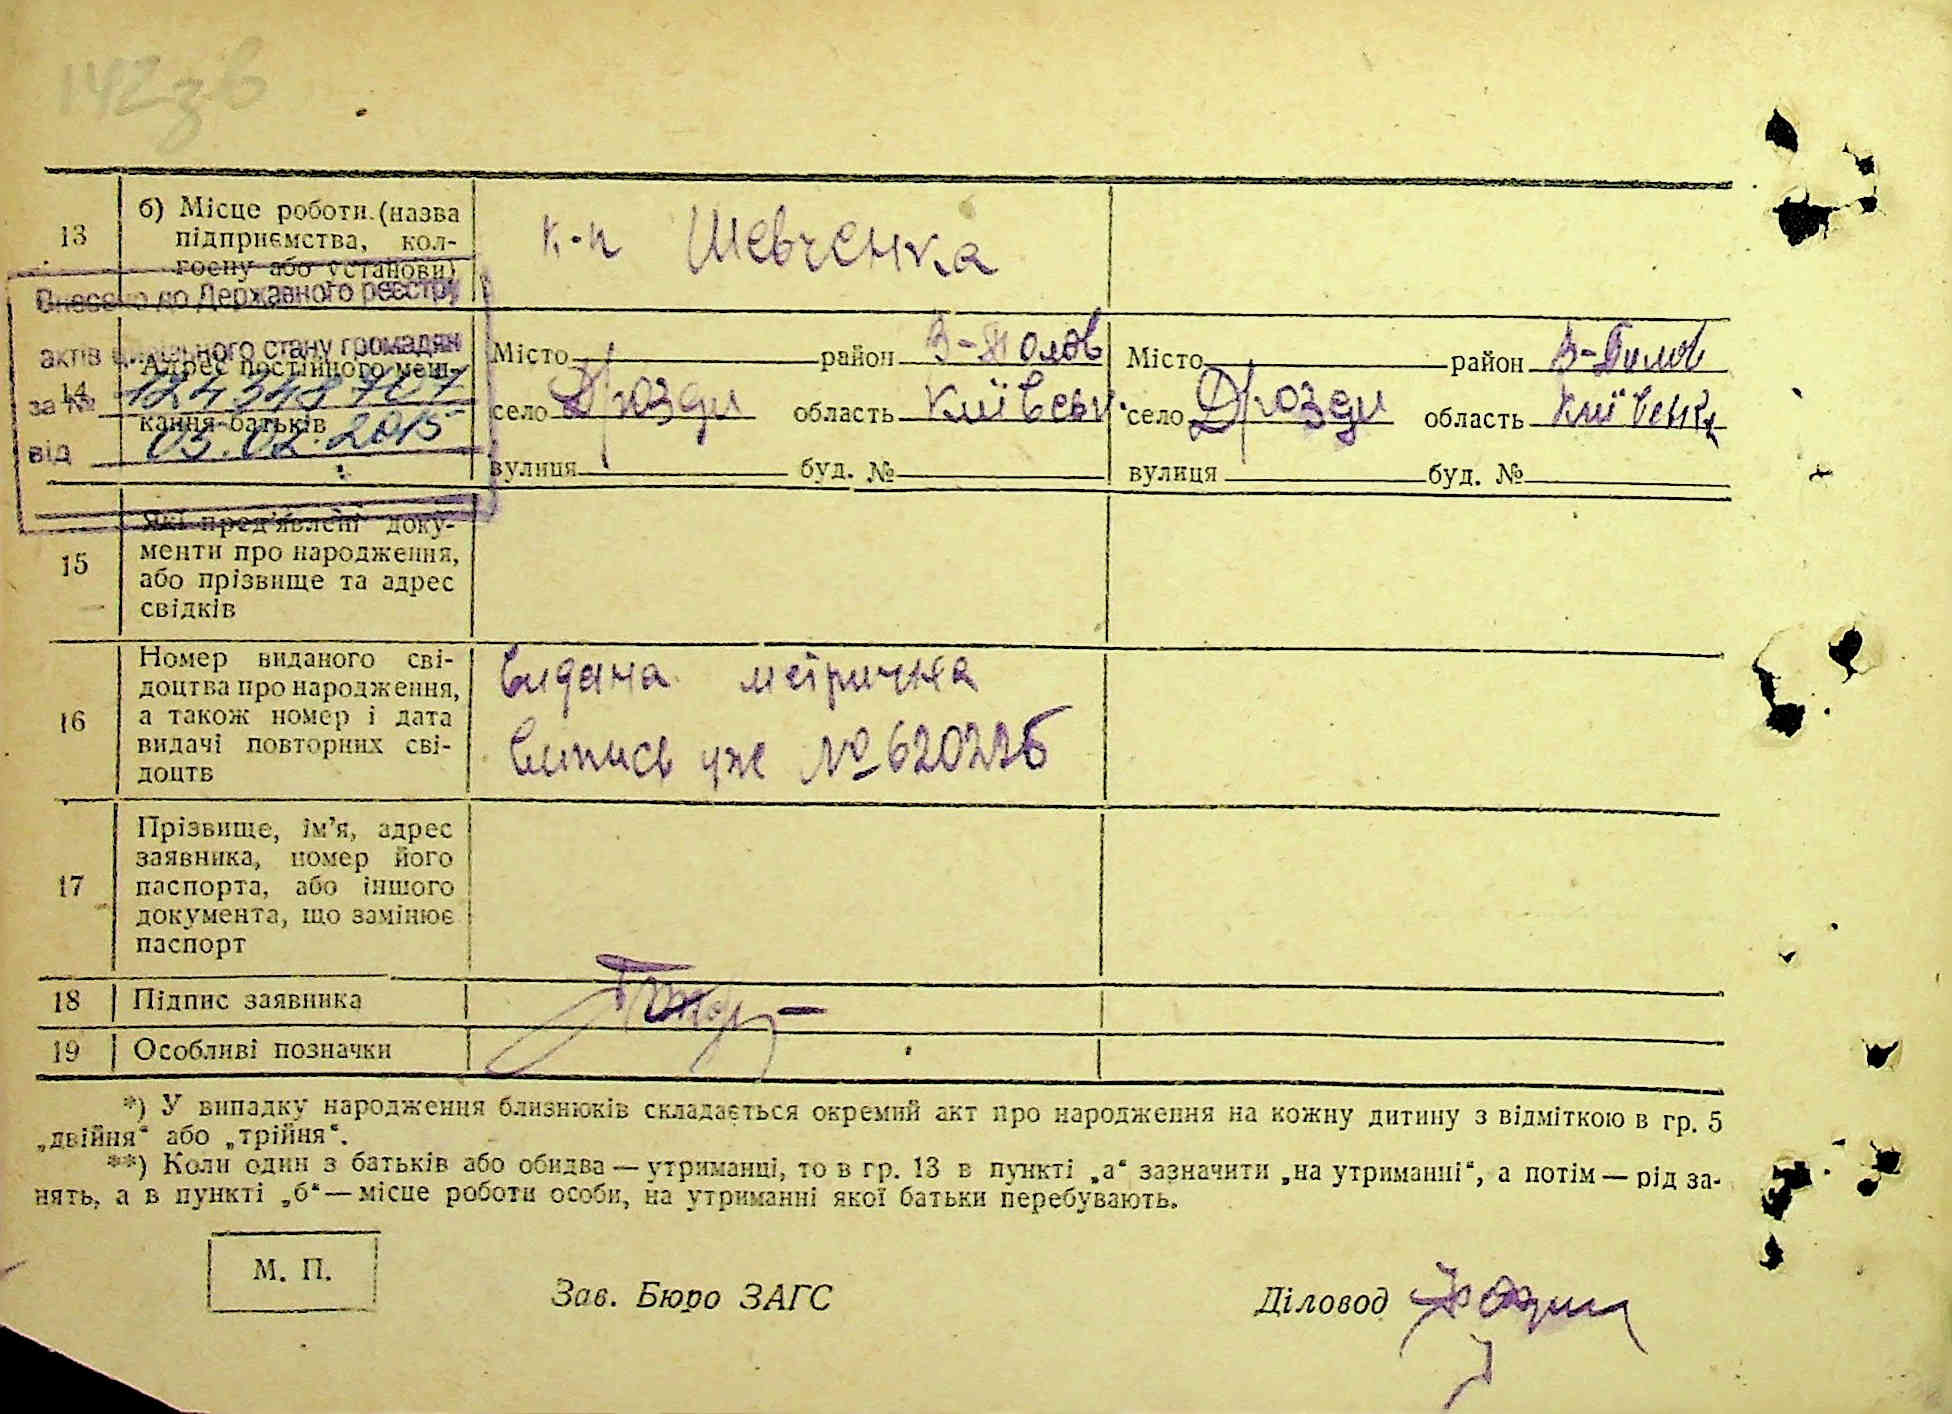 142зв
13 б) Місце роботи (назва
підприємства, кол-
госпу або установи)
к-п Шевченка
Внесено до Державного реєстру
актів цивільного стану громадян
за № 124348707
від 03.02.2015
14 Адрес постійного меш-
кання батьків
Місто район В-Полов Місто район В-Полов
село Дрозди область Київськ. село Дрозди область Київська
вулиця буд. № вулиця буд. №
15 Які пред'явлені доку-
менти про народження,
або прізвище та адрес
свідків
16 Номер виданого сві-
доцтва про народження,
а також номер і дата
видачі повторних сві-
доцтв
видана метрична
випись уже № 620226
17 Прізвище, ім'я, адрес
заявника, номер його
паспорта, або іншого
документа, що замінює
паспорт
18 Підпис заявника
19 Особливі позначки
*) У випадку народження близнюків складається окремий акт про народження на кожну дитину з відміткою в гр. 5
„двійня“ або „трійня“.
**) Коли один з батьків або обидва — утриманці, то в гр. 13 в пункті „а“ зазначити „на утриманні“, а потім — рід за-
нять, а в пункті „б“ — місце роботи особи, на утриманні якої батьки перебувають.
М. П.
Зав. Бюро ЗАГС Діловод